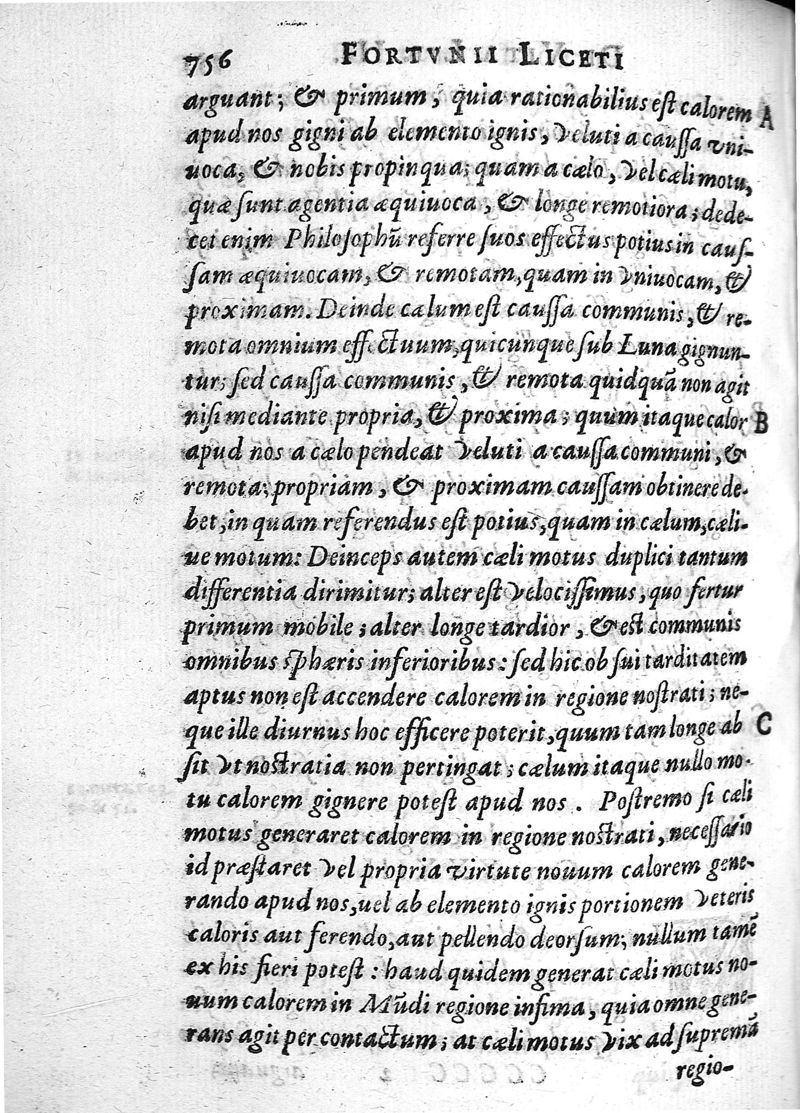 756 FORTVNII LICETI
arguant; & primum, quia rationabilius est calorem A
apud nos gigni ab elemento ignis, veluti a caussa vni-
uoca, & nobis propinqua; quam a cælo, vel cæli motu,
quæ sunt agentia æquiuoca, & longe remotiora; dede-
cet enim Philosophũ referre suos effectus potius in caus-
sam æquiuocam, & remotam, quam in vniuocam, &
proximam. Deinde cælum est caussa communis, & re-
mota omnium effectuum, quicunque sub Luna gignun-
tur; sed caussa communis, & remota quidquã non agit
nisi mediante propria, & proxima; quum itaque calor B
apud nos a cælo pendeat veluti a caussa communi, &
remota; propriam, & proximam caussam obtinere de-
bet, in quam referendus est potius, quam in cælum, cæli-
ue motum: Deinceps autem cæli motus duplici tantum
differentia dirimitur; alter est velocissimus, quo fertur
primum mobile; alter longe tardior, & est communis
omnibus sphæris inferioribus: sed hic ob sui tarditatem
aptus non est accendere calorem in regione nostrati; ne-
que ille diurnus hoc efficere poterit, quum tam longe ab C
sit vt nostratia non pertingat; cælum itaque nullo mo-
tu calorem gignere potest apud nos. Postremo si cæli
motus generaret calorem in regione nostrati, necessario
id præstaret vel propria virtute nouum calorem gene-
rando apud nos, uel ab elemento ignis portionem veteris
caloris aut ferendo, aut pellendo deorsum; nullum tamẽ
ex his fieri potest: haud quidem generat cæli motus no-
uum calorem in Mũdi regione infima, quia omne gene-
rans agit per contactum; at cæli motus vix ad supremã
regio-